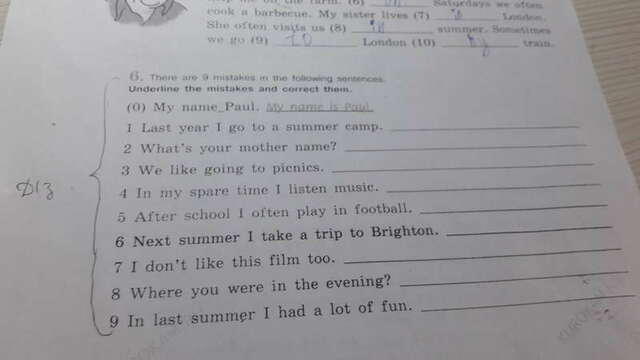 on the farm. (6) on Saturdays we often
cook a barbecue. My sister lives (7) in London.
She often visits us (8) in summer. Sometimes
we go (9) to London (10) by train.
6. There are 9 mistakes in the following sentences.
Underline the mistakes and correct them.
(0) My name Paul. My name is Paul.
1 Last year I go to a summer camp.
2 What's your mother name?
3 We like going to picnics.
4 In my spare time I listen music.
5 After school I often play in football.
6 Next summer I take a trip to Brighton.
7 I don't like this film too.
8 Where you were in the evening?
9 In last summer I had a lot of fun.